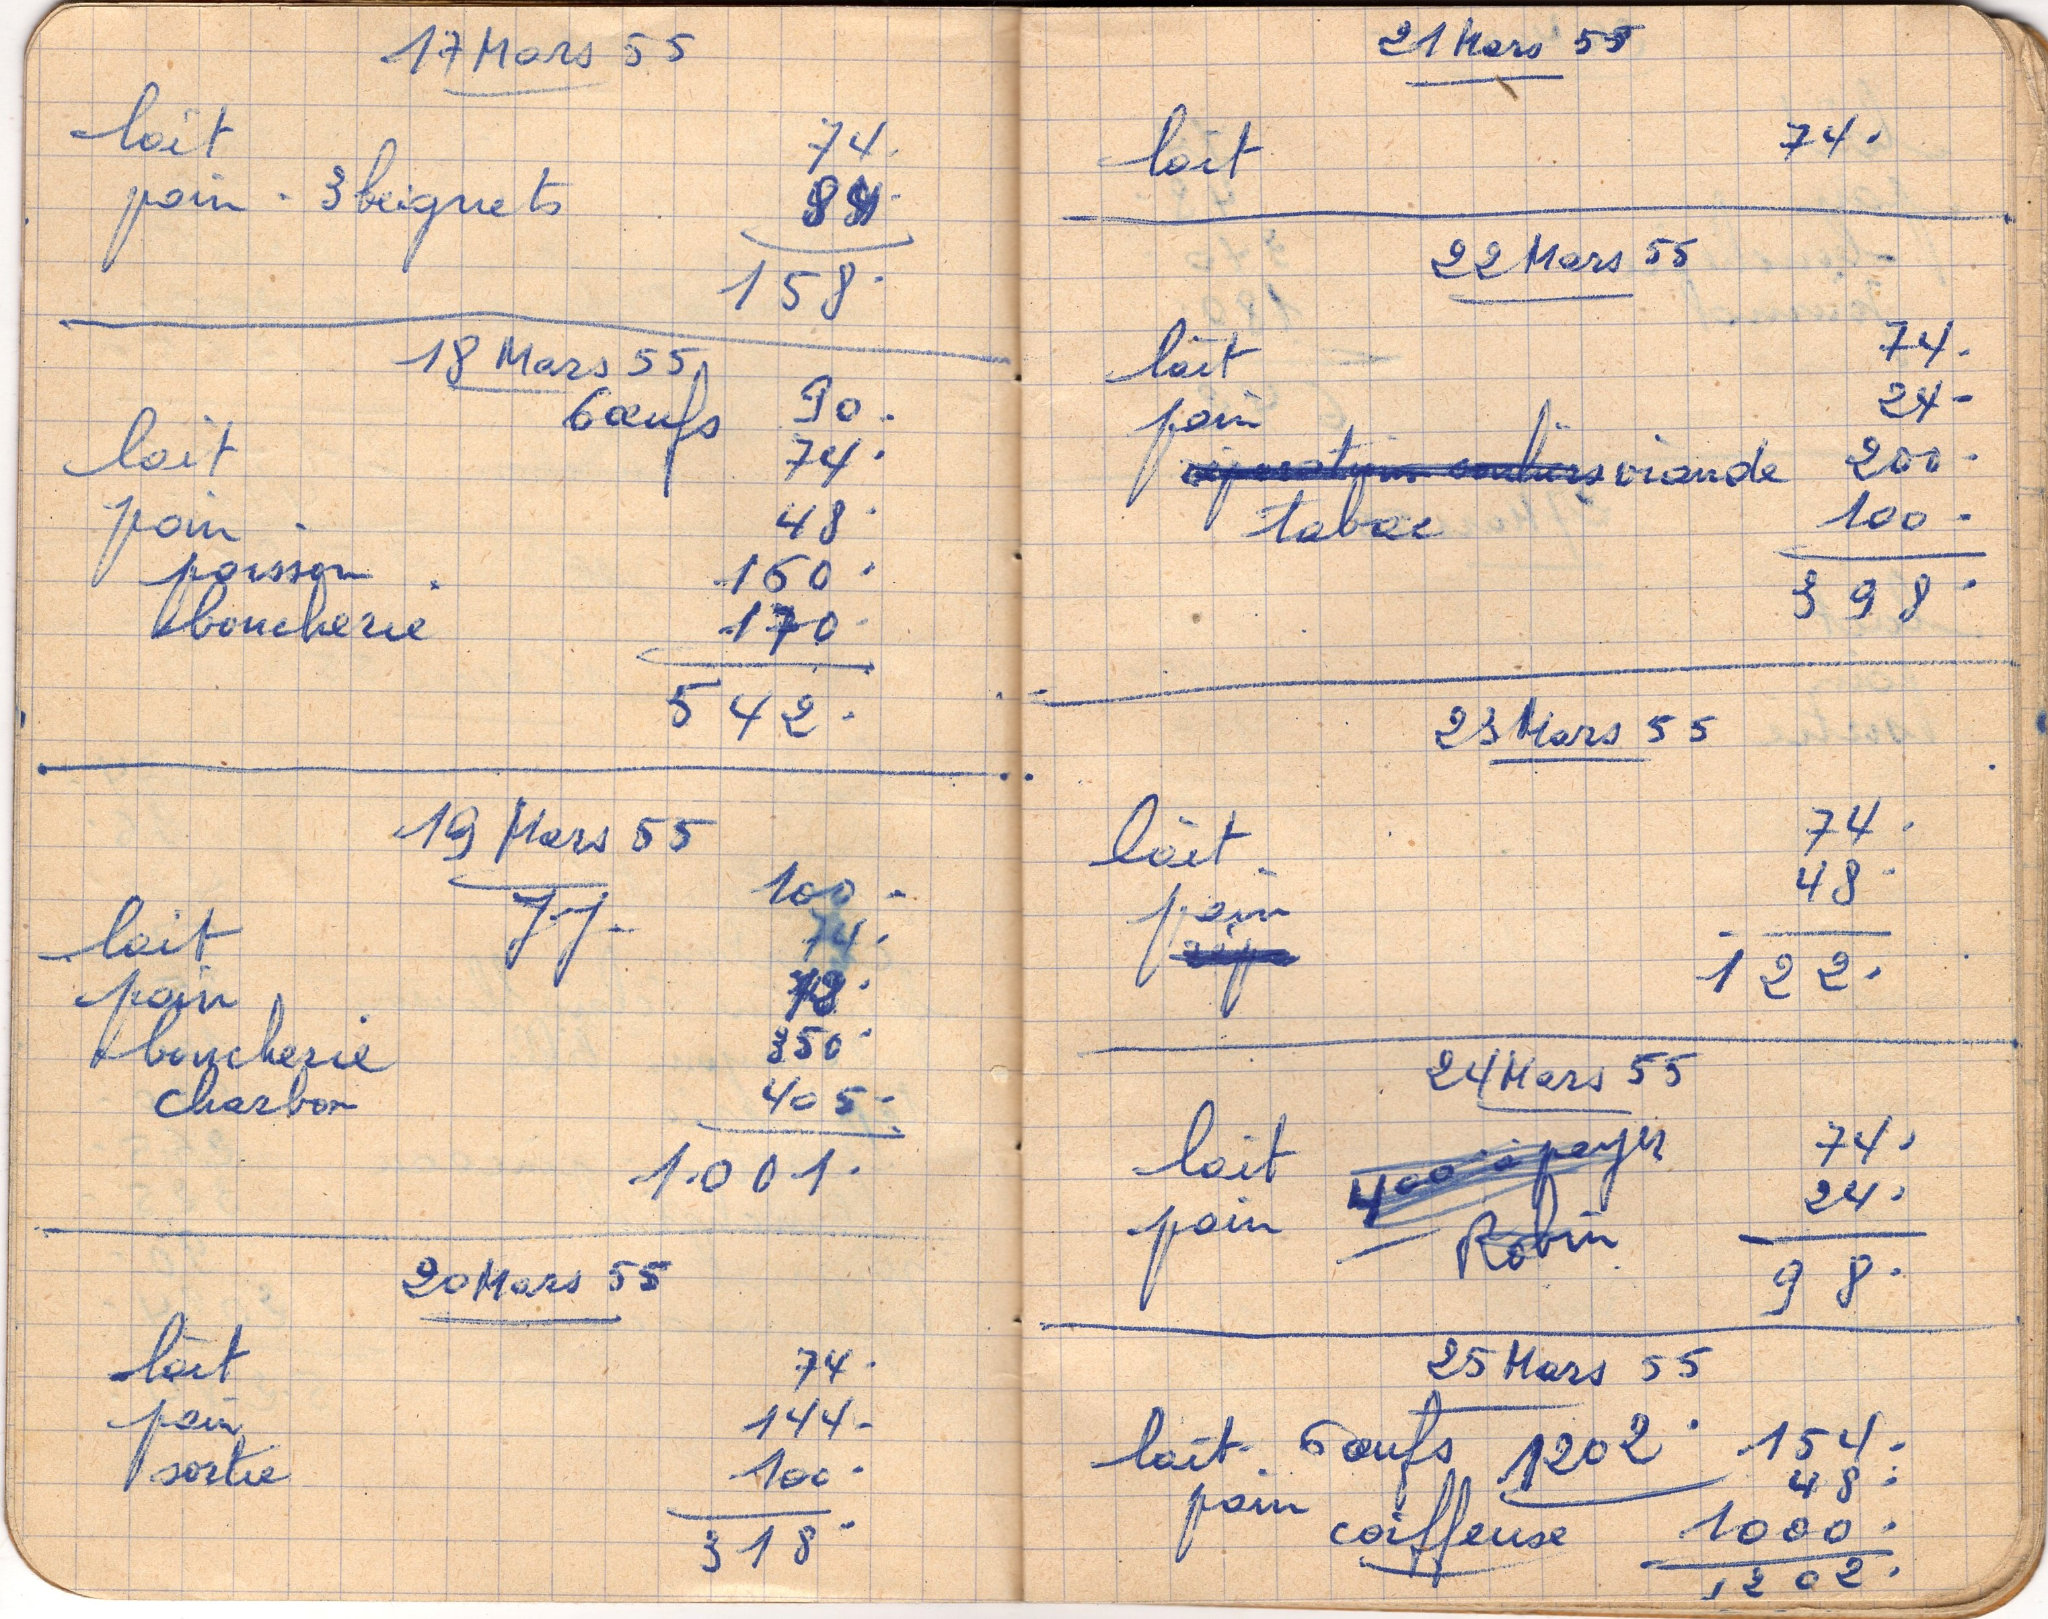 17 Mars 55
lait 74.
pain . 3 beignets 84.
158.
18 Mars 55
6 œufs 90.
lait 74.
pain 48.
poisson 160.
boucherie 170.
542.
19 Mars 55
J.J. 100.
lait 74.
pain 72.
boucherie 350.
charbon 405.
1.001.
20 Mars 55
lait 74.
pain 144.
sortie 100.
318.
21 Mars 55
lait 74.
22 Mars 55
lait 74.
pain 24.
viande 200.
tabac 100.
398.
23 Mars 55
lait 74.
pain 48.
122.
24 Mars 55
lait 400 à payer 74.
pain Robin 24.
98.
25 Mars 55
lait. 6 œufs 1202. 154.
pain 48.
coiffeuse 1000.
1202.